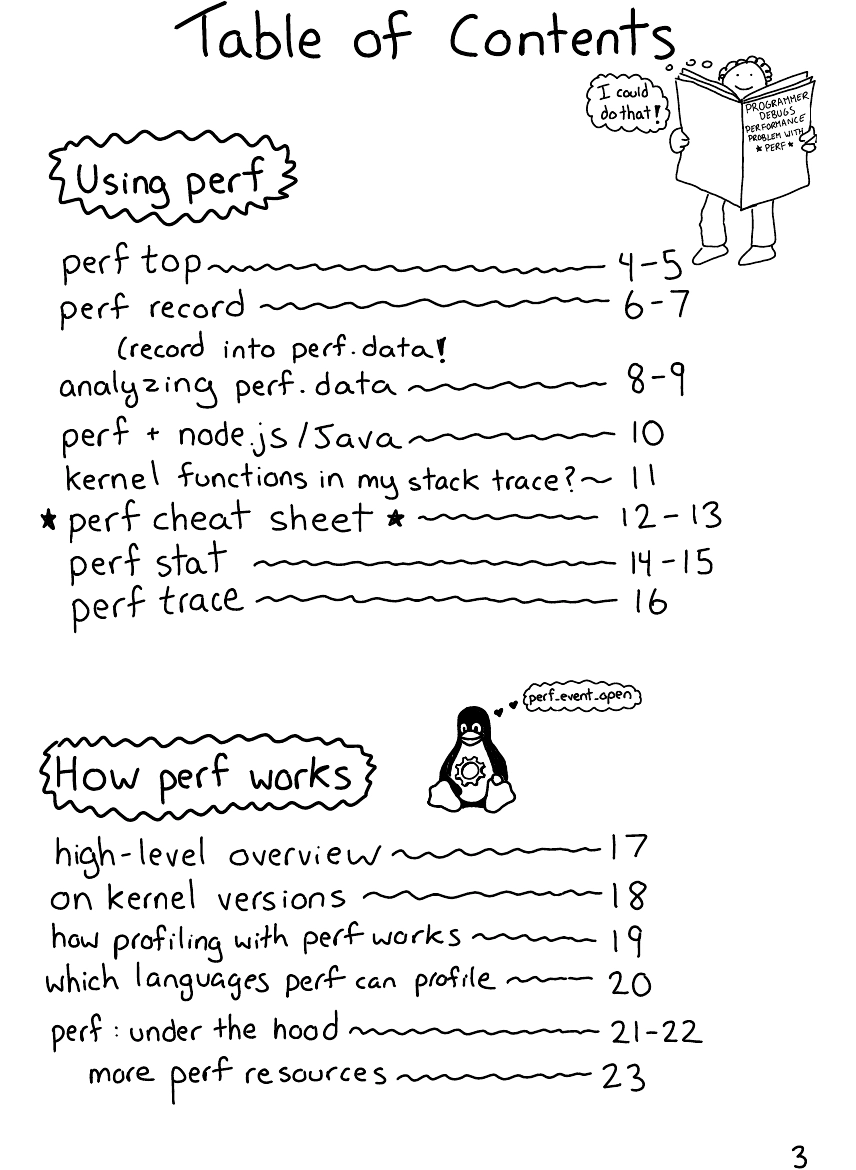 Table of Contents
I could
do that!
PROGRAMMER
DEBUGS
PERFORMANCE
PROBLEM WITH
★ PERF ★
Using perf
perf top 4-5
perf record 6-7
(record into perf.data!
analyzing perf.data 8-9
perf + node.js/Java 10
kernel functions in my stack trace? 11
★ perf cheat sheet ★ 12-13
perf stat 14-15
perf trace 16
perf_event_open
How perf works
high-level overview 17
on kernel versions 18
how profiling with perf works 19
which languages perf can profile 20
perf: under the hood 21-22
more perf resources 23
3